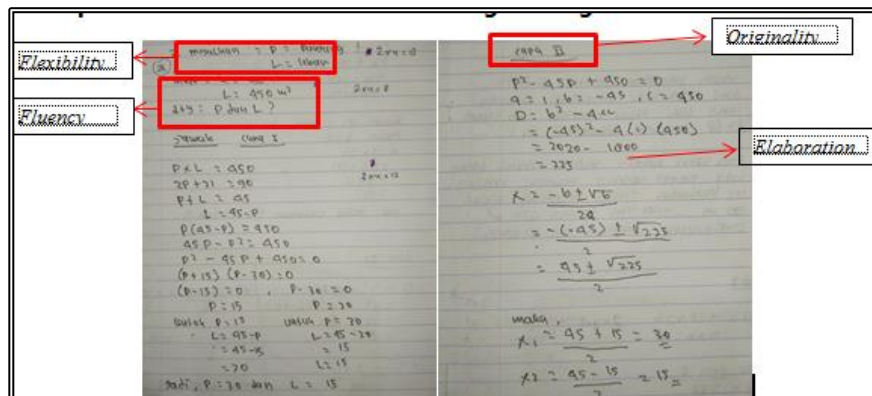 Flexibility
Fluency
Originality
Elaboration
misalkan : P = Panjang
L = lebar
L = 450 m²
dty : P dan L ?
Jawab Cara I
P x L = 450
2P + 2l = 90
P + L = 45
L = 45 - P
P(45-P) = 450
45P - P² = 450
P² - 45P + 450 = 0
(P+15) (P-30) = 0
(P-15) = 0 , P - 30 = 0
P = 15 P = 30
untuk P = 15 untuk P = 30
L = 45 - P L = 45 - 30
= 45 - 15 = 15
= 30 L = 15
Jadi, P = 30 dan L = 15
cara II
P² - 45P + 450 = 0
a = 1, b = -45, c = 450
D = b² - 4ac
= (-45)² - 4(1) (450)
= 2020 - 1800
= 225
x = -b ± √b
2a
= -(-45) ± √225
2
= 45 ± √225
2
maka,
x₁ = 45 + 15 = 30
2
x₂ = 45 - 15 = 15
2